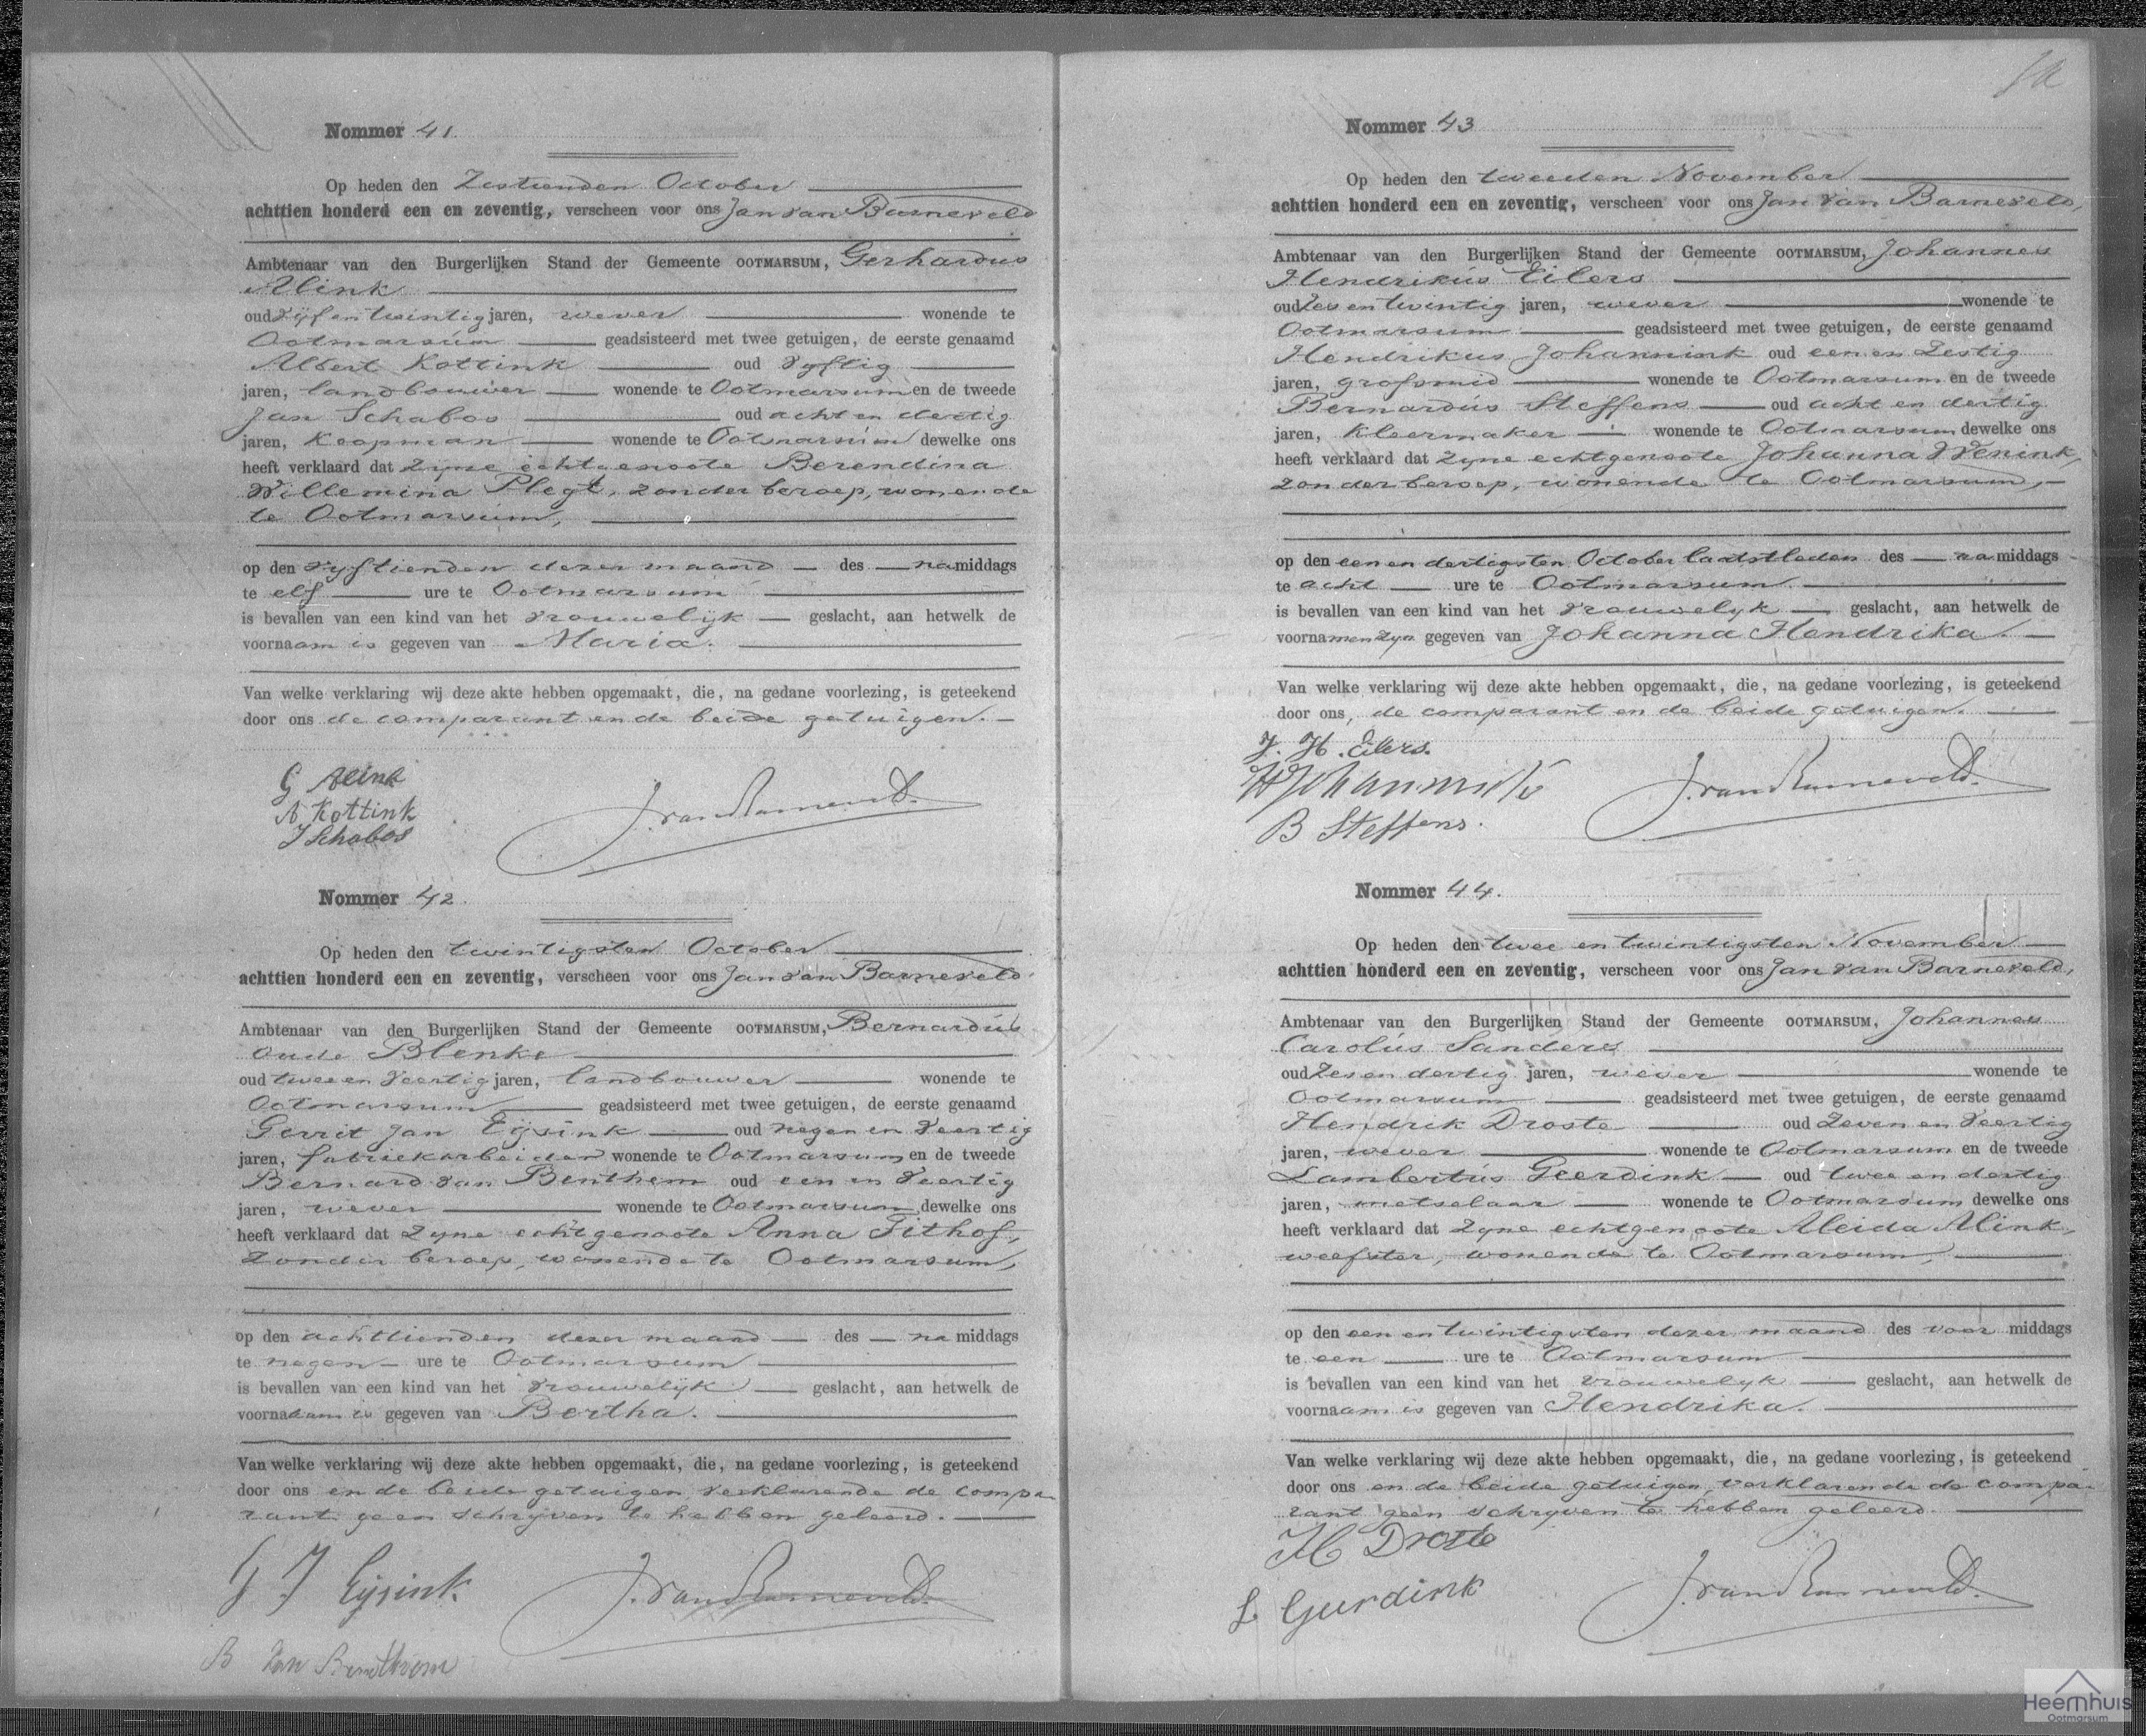 Nommer 41.
Op heden den Zestienden October
achttien honderd een en zeventig, verscheen voor ons Jan van Barneveld
Ambtenaar van den Burgerlijken Stand der Gemeente OOTMARSUM, Gerhardus
Alink
oud vyf en twintig jaren, wever wonende te
Ootmarsum geadsisteerd met twee getuigen, de eerste genaamd
Albert Kottink oud vyftig
jaren, landbouwer wonende te Ootmarsum en de tweede
Jan Schabos oud acht en dertig
jaren, koopman wonende te Ootmarsum dewelke ons
heeft verklaard dat zyne echtgenoote Berendina
Willemina Plegt, zonder beroep, wonende
te Ootmarsum,
op den vyftienden dezer maand des namiddags
te elf ure te Ootmarsum
is bevallen van een kind van het vrouwelijk geslacht, aan hetwelk de
voornaam is gegeven van Maria.
Van welke verklaring wij deze akte hebben opgemaakt, die, na gedane voorlezing, is geteekend
door ons de comparant en de beide getuigen.
G Alink
A Kottink
J Schabos
J. van Barneveld.
Nommer 42.
Op heden den twintigsten October
achttien honderd een en zeventig, verscheen voor ons Jan van Barneveld
Ambtenaar van den Burgerlijken Stand der Gemeente OOTMARSUM, Bernardus
oude Blenke
oud twee en veertig jaren, landbouwer wonende te
Ootmarsum geadsisteerd met twee getuigen, de eerste genaamd
Gerrit Jan Eijsink oud negen en veertig
jaren, fabriekarbeider wonende te Ootmarsum en de tweede
Bernard van Benthem oud een en veertig
jaren, wever wonende te Ootmarsum dewelke ons
heeft verklaard dat zyne echtgenoote Anna Tithof,
zonder beroep, wonende te Ootmarsum,
op den achttienden dezer maand des na middags
te negen ure te Ootmarsum
is bevallen van een kind van het vrouwelijk geslacht, aan hetwelk de
voornaam is gegeven van Bertha.
Van welke verklaring wij deze akte hebben opgemaakt, die, na gedane voorlezing, is geteekend
door ons en de beide getuigen verklarende de compa
rant geen schryven te hebben geleerd.
G J Eijsink
J. van Barneveld.
B Van Benthem
Nommer 43
Op heden den tweeden November
achttien honderd een en zeventig, verscheen voor ons Jan van Barneveld,
Ambtenaar van den Burgerlijken Stand der Gemeente OOTMARSUM, Johannes
Hendrikus Eilers
oud zes en twintig jaren, wever wonende te
Ootmarsum geadsisteerd met twee getuigen, de eerste genaamd
Hendrikus Johannink oud een en zestig
jaren, grofsmid wonende te Ootmarsum en de tweede
Bernardus Steffens oud acht en dertig
jaren, kleermaker wonende te Ootmarsum dewelke ons
heeft verklaard dat zyne echtgenoote Johanna Wenink,
zonder beroep, wonende te Ootmarsum,
op den een en dertigsten October laatstleden des na middags
te acht ure te Ootmarsum.
is bevallen van een kind van het vrouwelyk geslacht, aan hetwelk de
voornamen zyn gegeven van Johanna Hendrika.
Van welke verklaring wij deze akte hebben opgemaakt, die, na gedane voorlezing, is geteekend
door ons, de comparant en de beide getuigen.
J. H. Eilers.
H Johannink
B Steffens.
J. van Barneveld.
Nommer 44.
Op heden den twee en twintigsten November
achttien honderd een en zeventig, verscheen voor ons Jan van Barneveld,
Ambtenaar van den Burgerlijken Stand der Gemeente OOTMARSUM, Johannes
Carolus Sanders
oud zes en dertig jaren, wever wonende te
Ootmarsum geadsisteerd met twee getuigen, de eerste genaamd
Hendrik Droste oud zeven en veertig
jaren, wever wonende te Ootmarsum en de tweede
Lambertus Geerdink oud twee en dertig
jaren, metselaar wonende te Ootmarsum dewelke ons
heeft verklaard dat zyne echtgenoote Aleida Alink,
weefster, wonende te Ootmarsum,
op den een en twintigsten dezer maand des voor middags
te een ure te Ootmarsum
is bevallen van een kind van het vrouwelyk geslacht, aan hetwelk de
voornaam is gegeven van Hendrika.
Van welke verklaring wij deze akte hebben opgemaakt, die, na gedane voorlezing, is geteekend
door ons en de beide getuigen, verklarende de compa-
rant geen schryven te hebben geleerd.
H Droste
L Geerdink
J. van Barneveld.
Heemhuis
Ootmarsum